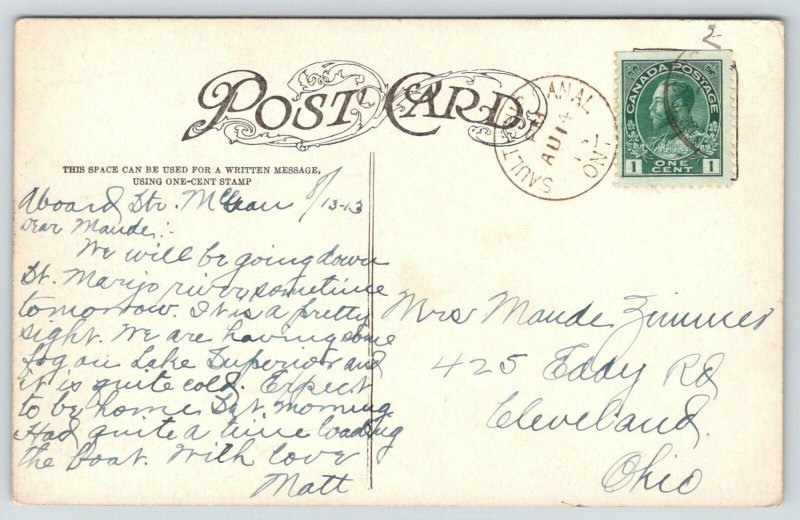 2
POST CARD
SAULT STE CANAL
AU 14
13
ONT
CANADA POSTAGE
1 ONE CENT 1
THIS SPACE CAN BE USED FOR A WRITTEN MESSAGE,
USING ONE-CENT STAMP
Aboard Str. McGean 8/13-13
Dear Maude:-
We will be going down
St. Marys river sometime
tomorrow. It is a pretty
sight. We are having some
fog on Lake Superior and
it is quite cold. Expect
to be home Sat. morning
Had quite a time loading
the boat. With love
Matt
Mrs Maude Zimmer
425 Eddy Rd
Cleveland.
Ohio